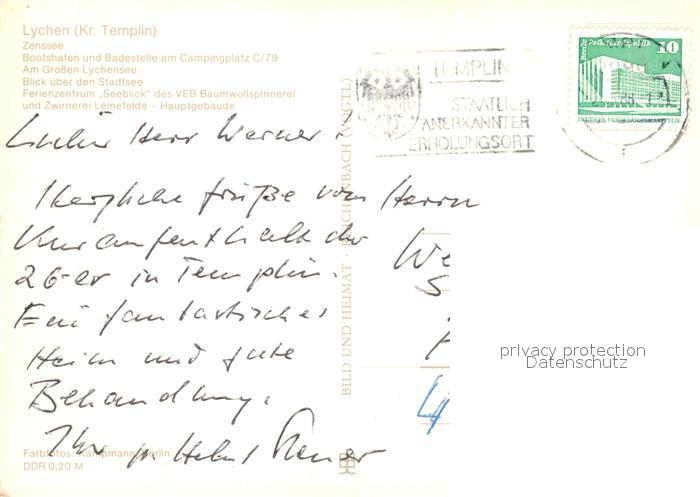 Lychen (Kr. Templin)
Zenssee
Bootshafen und Badestelle am Campingplatz C/79
Am Großen Lychensee
Blick über den Stadtsee
Ferienzentrum „Seeblick" des VEB Baumwollspinnerei
und Zwirnerei Leinefelde - Hauptgebäude
TEMPLIN
STAATLICH
ANERKANNTER
ERHOLUNGSORT
Berlin Palast der Republik
10
Herr Werner
Herzliche Grüße vom
Kuraufenthalt der
26-er in Templin.
Ein fantastisches
Heim und gute
Behandlung.
Ihr Helmut
Herrn
We
BILD UND HEIMAT · REICHENBACH (VOGTL)
privacy protection
Datenschutz
Farbfotos: Kampmann, Berlin
DDR 0,20 M